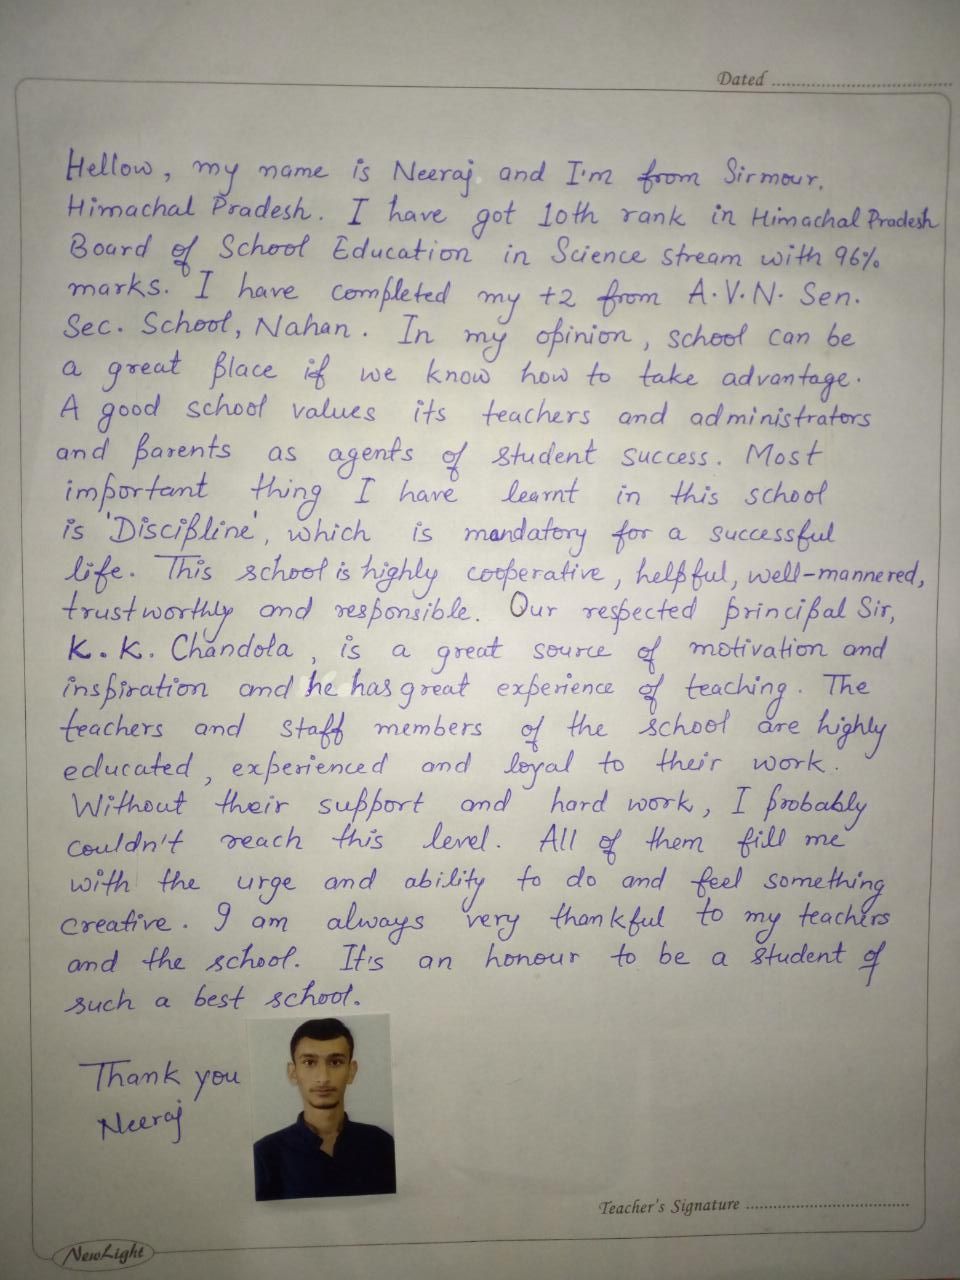 Dated
Hellow, my name is Neeraj and I'm from Sirmour,
Himachal Pradesh. I have got 10th rank in Himachal Pradesh
Board of School Education in Science stream with 96%
marks. I have completed my +2 from A.V.N. Sen.
Sec. School, Nahan. In my opinion, school can be
a great place if we know how to take advantage.
A good school values its teachers and administrators
and parents as agents of student success. Most
important thing I have learnt in this school
is 'Discipline', which is mandatory for a successful
life. This school is highly cooperative, helpful, well-mannered,
trustworthly and responsible. Our respected principal Sir,
K.K. Chandola, is a great source of motivation and
inspiration and he has great experience of teaching. The
teachers and staff members of the school are highly
educated, experienced and loyal to their work.
Without their support and hard work, I probably
couldn't reach this level. All of them fill me
with the urge and ability to do and feel something
creative. I am always very thankful to my teachers
and the school. It's an honour to be a student of
such a best school.
Thank you
Neeraj
Teacher's Signature
NewLight